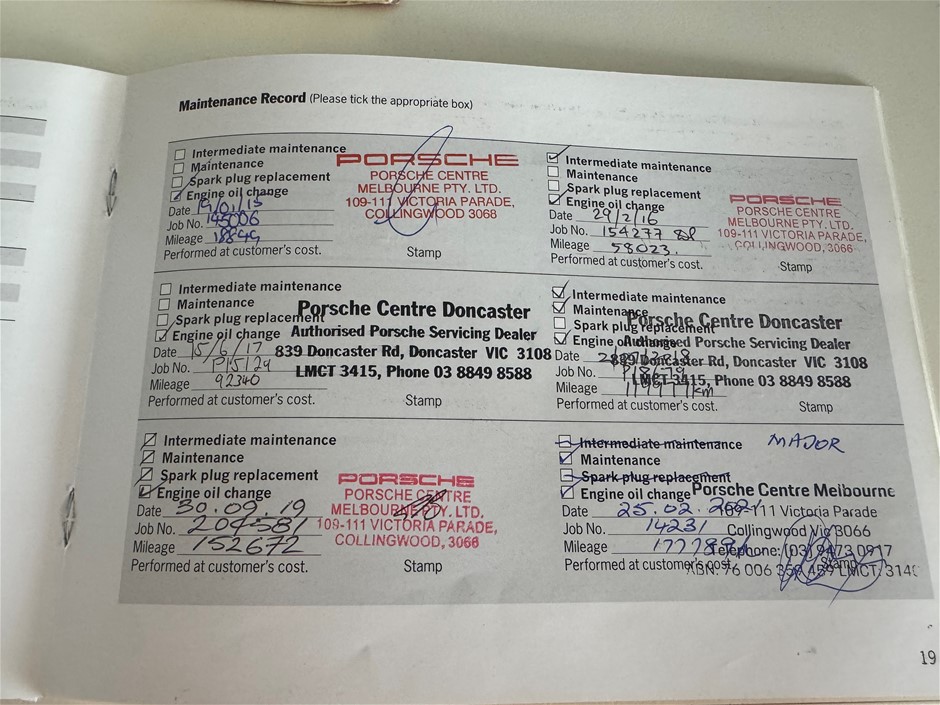 Maintenance Record (Please tick the appropriate box)
Intermediate maintenance
Maintenance
Spark plug replacement
Engine oil change
Date 19/01/15
Job No. 145006
Mileage
Performed at customer's cost.
PORSCHE
PORSCHE CENTRE
MELBOURNE PTY. LTD.
109-111 VICTORIA PARADE,
COLLINGWOOD 3068
Stamp
Intermediate maintenance
Maintenance
Spark plug replacement
Engine oil change
Date 29/2/16
Job No. 154277
Mileage 58023.
Performed at customer's cost.
PORSCHE
PORSCHE CENTRE
MELBOURNE PTY. LTD.
109-111 VICTORIA PARADE,
COLLINGWOOD, 3066
Stamp
Intermediate maintenance
Maintenance
Spark plug replacement
Engine oil change
Date 15/6/17
Job No. P15129
Mileage 92340
Performed at customer's cost.
Porsche Centre Doncaster
Authorised Porsche Servicing Dealer
839 Doncaster Rd, Doncaster VIC 3108
LMCT 3415, Phone 03 8849 8588
Stamp
Intermediate maintenance
Maintenance
Spark plug replacement
Engine oil change
Date
Job No.
Mileage km
Performed at customer's cost.
Porsche Centre Doncaster
Authorised Porsche Servicing Dealer
839 Doncaster Rd, Doncaster VIC 3108
LMCT 3415, Phone 03 8849 8588
Stamp
Intermediate maintenance
Maintenance
Spark plug replacement
Engine oil change
Date 30.09.19
Job No. 204581
Mileage 152672
Performed at customer's cost.
PORSCHE
PORSCHE CENTRE
MELBOURNE PTY. LTD.
109-111 VICTORIA PARADE,
COLLINGWOOD, 3066
Stamp
Intermediate maintenance MAJOR
Maintenance
Spark plug replacement
Engine oil change
Date 25.02.2021
Job No. 14231
Mileage
Performed at customer's cost.
Porsche Centre Melbourne
109-111 Victoria Parade
Collingwood Vic 3066
Telephone: (03) 9473 0917
Stamp
19